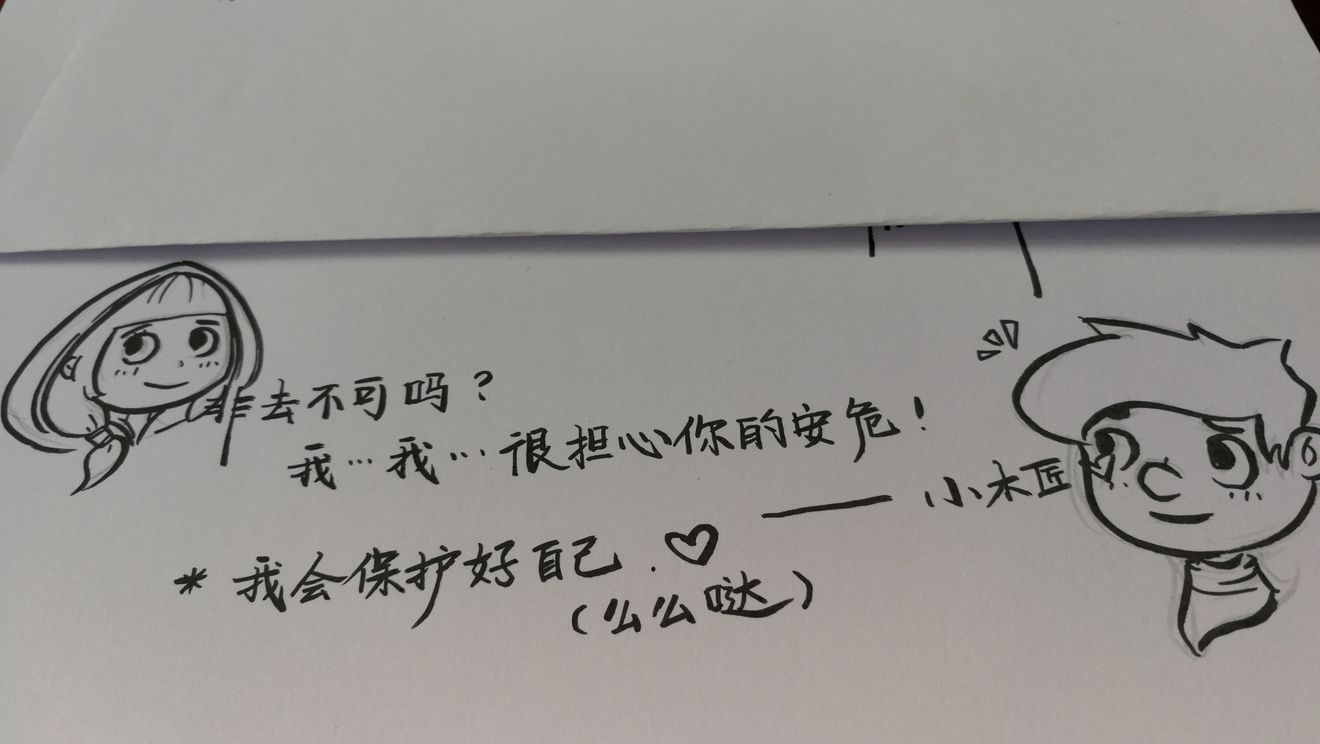 非去不可吗？
我…我…很担心你的安危！
—— 小木匠
* 我会保护好自己.♡
（么么哒）